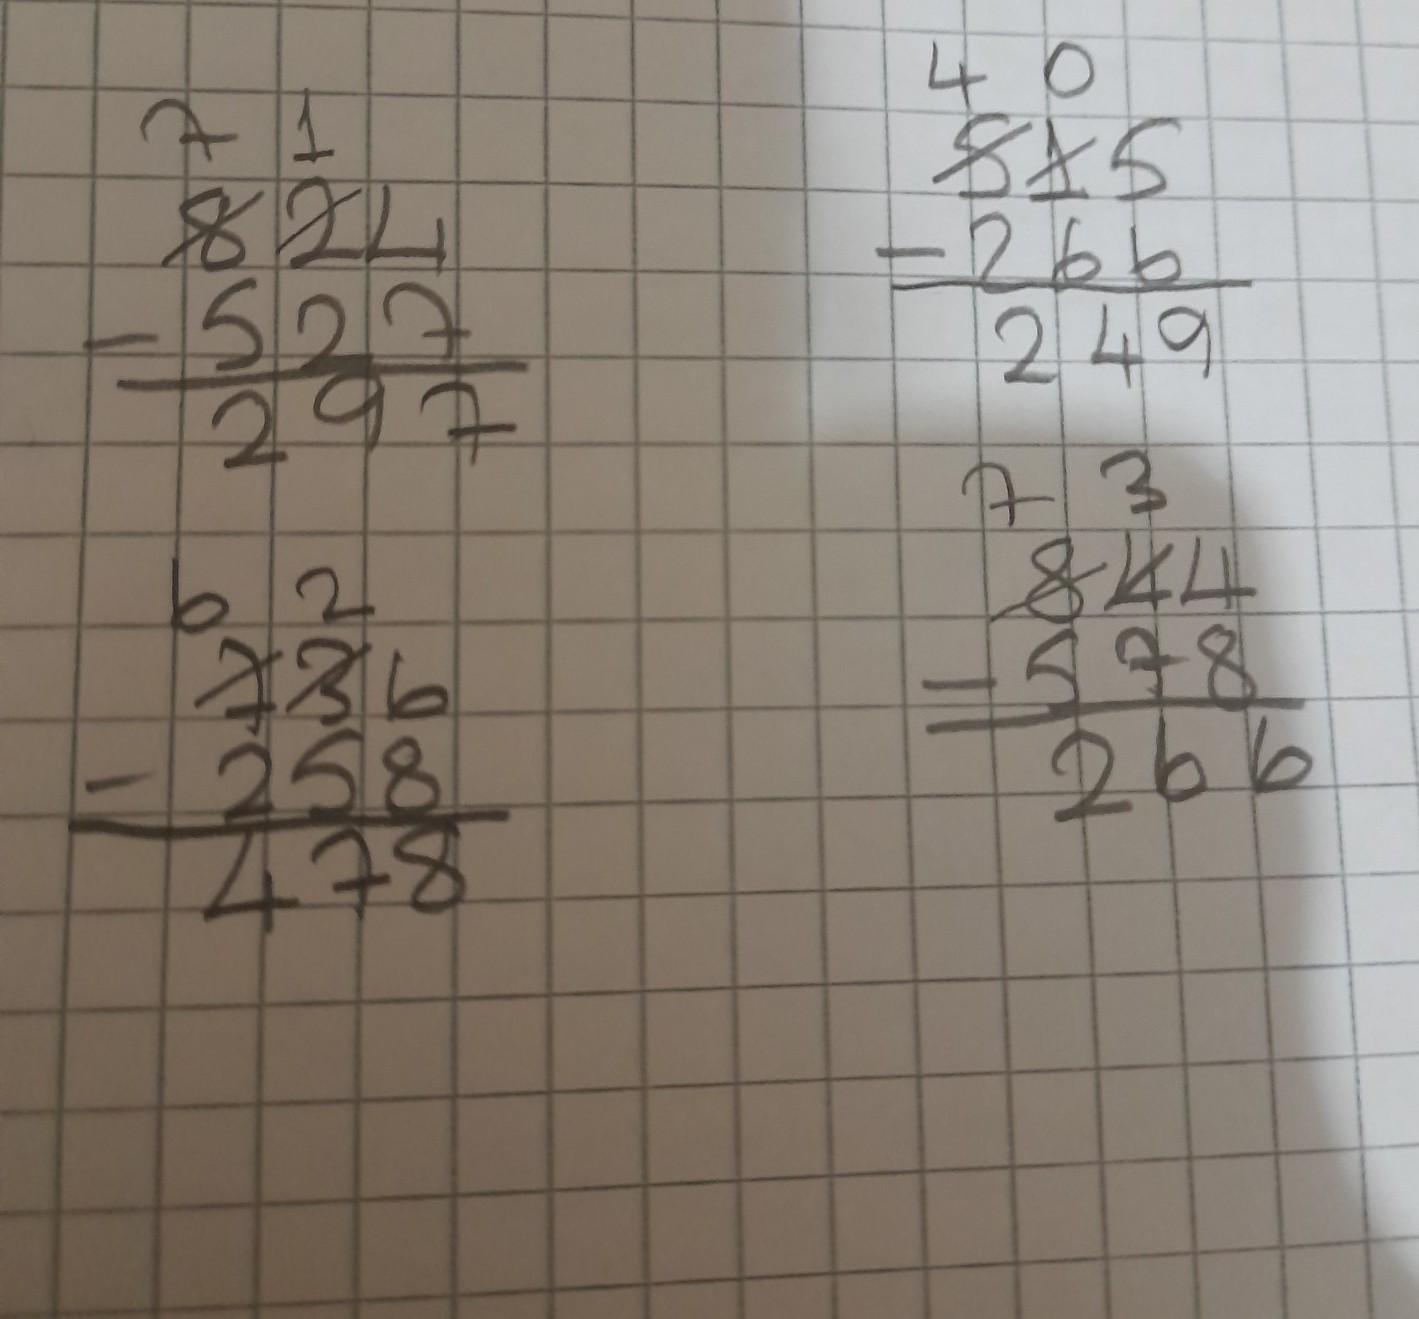 7 1
824
- 527
297
4 0
515
- 266
249
6 2
736
- 258
478
7 3
844
- 578
266